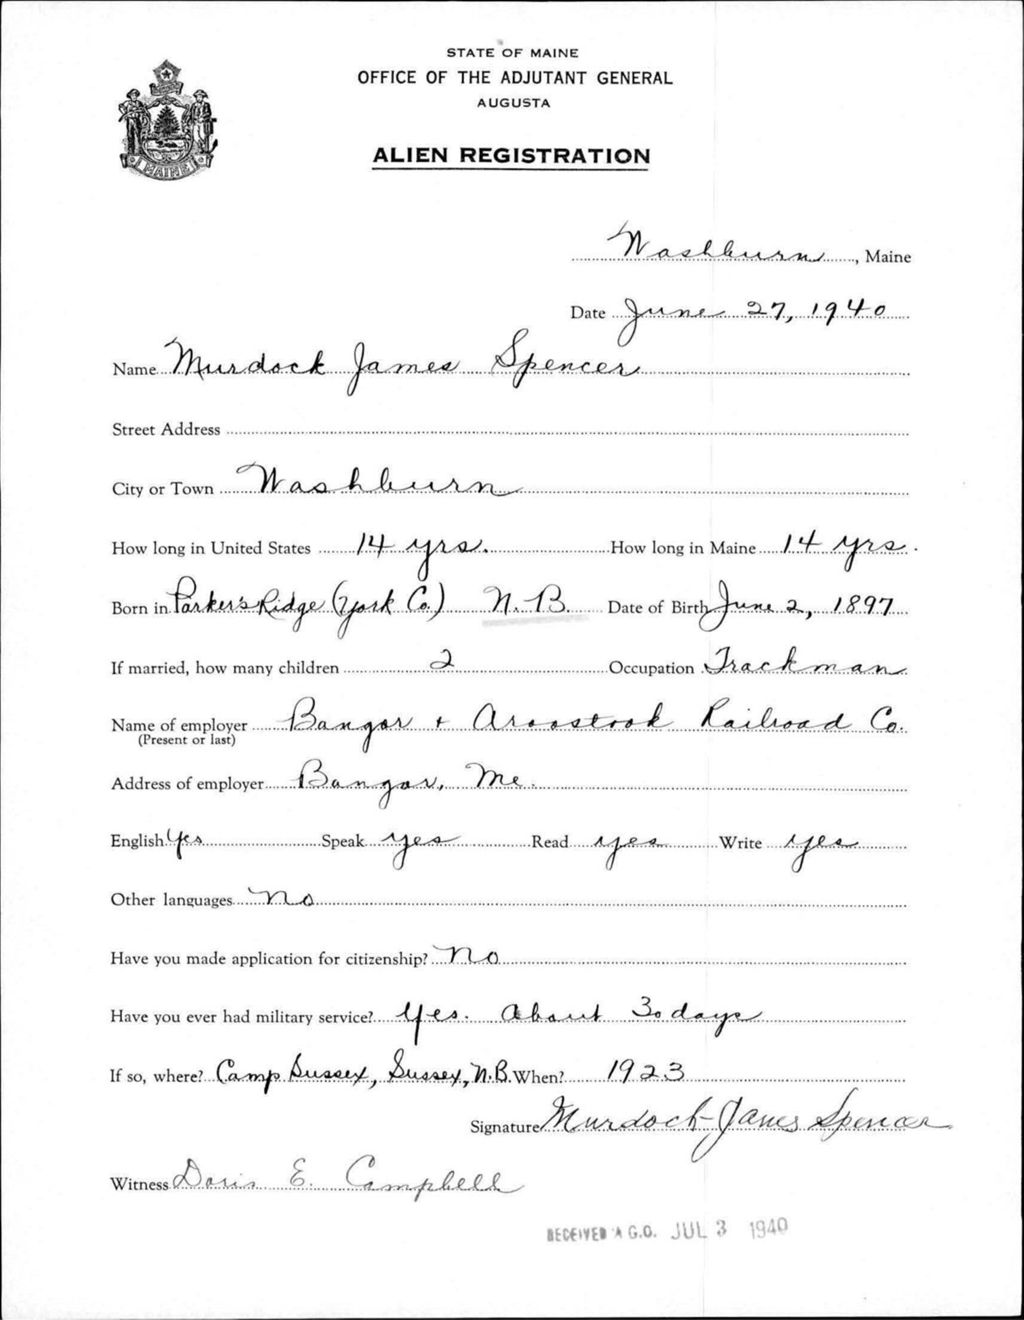 STATE OF MAINE
OFFICE OF THE ADJUTANT GENERAL
AUGUSTA
ALIEN REGISTRATION
MAINE
Washburn, Maine
Date June 27, 1940
Name Murdock James Spencer
Street Address
City or Town Washburn
How long in United States 14 yrs. How long in Maine 14 yrs.
Born in Parker's Ridge (York Co.) N.B. Date of Birth June 2, 1897
If married, how many children 2 Occupation Trackman
Name of employer Bangor + Aroostook Railroad Co.
(Present or last)
Address of employer Bangor, Me.
English Yes Speak yes Read yes Write yes
Other languages No
Have you made application for citizenship? No
Have you ever had military service? Yes. About 30 days
If so, where? Camp Sussex, Sussex, N.B. When? 1923
Signature Murdock James Spencer
Witness Doris E. Campbell
RECEIVED A.G.O. JUL 3 1940